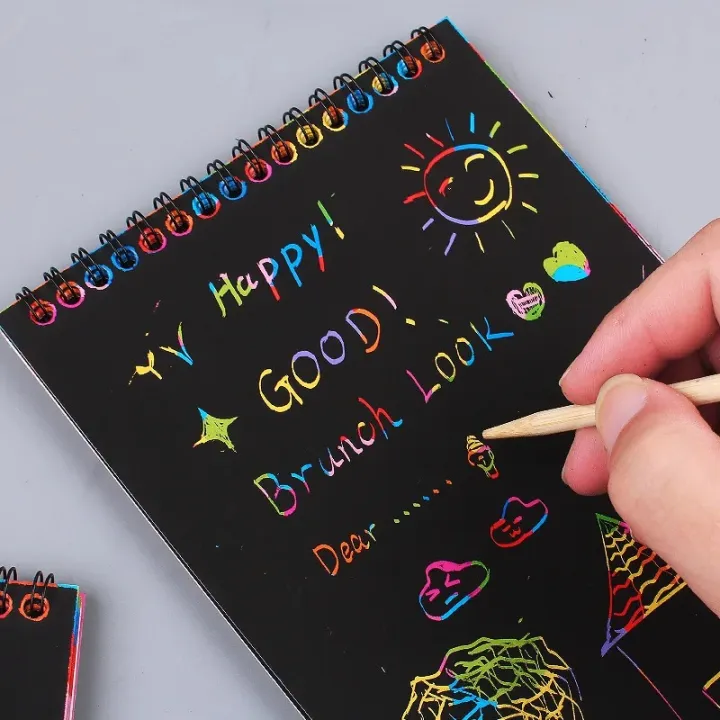 Happy!
GOOD!
Brunch Look
Dear ......